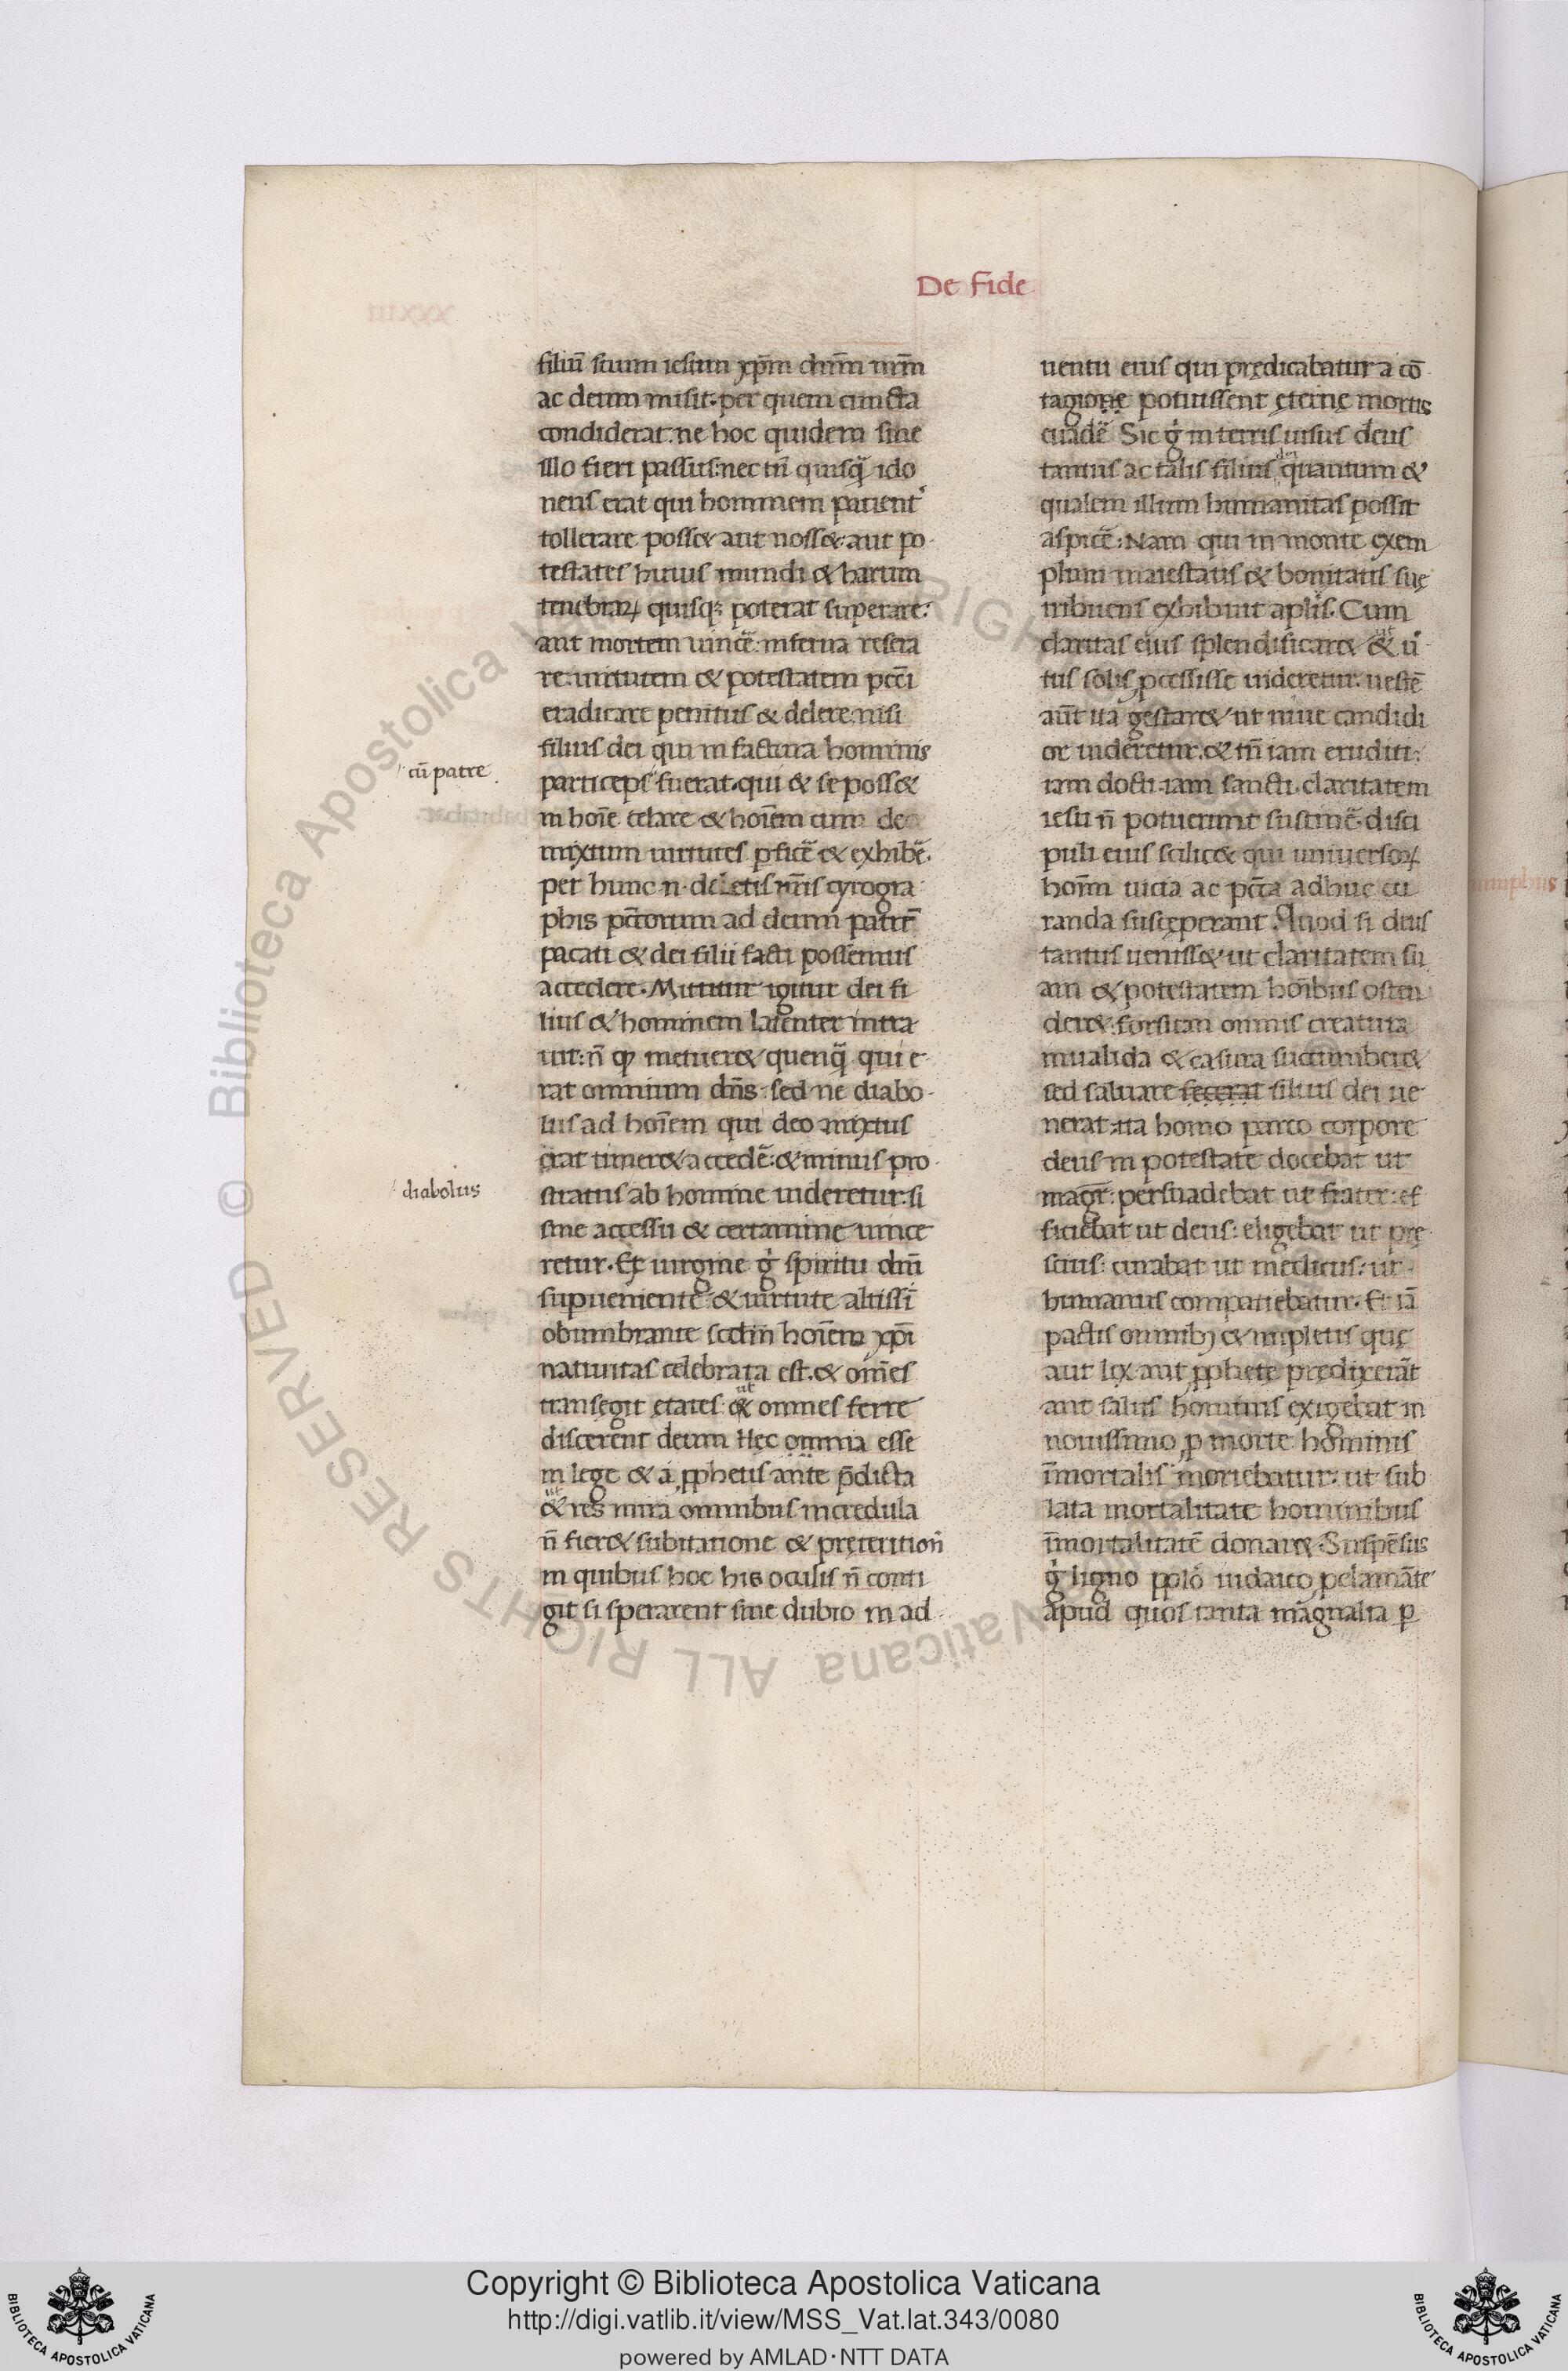 De fide
filiū suum iesum xp̄m dn̄m nr̄m
ac deum misit. per quem cuncta
condiderat: ne hoc quidem sine
illo fieri passus: nec tn̄ quisq̄ ido
neus erat qui hominem patient̉
tollerare poss& aut noss&. aut po
testates huius mundi & harum
tenebraꝝ quisqꝫ poterat superare:
aut mortem uincē: inferna resera
re: uirtutem & potestatem pcc̄i
eradicare penitus & delere: nisi
filius dei qui in factura hominis
cū patre
particeps fuerat. qui & se poss&
in hoīe celare & hoīem cum deo
mixtum uirtutes ꝑficē & exhibē.
per hunc n. deletis nr̄is cyrogra
phis pcc̄torum ad deum patrē
pacati & dei filii facti possemus
accedere. Mittitur igitur dei fi
lius & hominem latenter intra
uit: n̄ ꝙ metuer& quenq̄ qui e
rat omnium dn̄s: sed ne diabo
lus ad hoīem qui deo mixtus
erat timer& accedē: & minus pro
diabolus
stratus ab homine uideretur: si
sine accessu & certamine uince
retur. Ex uirgine g̊ spiritu dn̄i
supueniente & uirtute altissī
obumbrante scd̄m hoīem xp̄i
natiuitas celebrata est. & om̄es
transegit ętates: ut & omnes ferre
discerent deum Hęc omnia esse
in lege & a ꝓphetis ante p̄dicta
ut & res mira omnibus incredula
n̄ fier& subitatione & pręterition̄
in quibus hoc his oculis n̄ conti
git si sperarent sine dubio in ad
uentu eius qui prędicabatur a cō
tagione potuissent ęternę mortis
euadē Sic g̊ in terris uisus deus
tantus ac talis filius dei quantum &
qualem illum humanitas possit
aspicē: Nam qui in monte exem
plum maiestatis & bonitatis suę
tribuens exhibuit aplīs. Cum
claritas eius splendificar& ut & u̾
tus solis ꝓcessisse uideretur. uestē
aūt ita gestar& ut niue candidi
or uideretur. & tn̄ iam eruditi:
iam docti. iam sancti. claritatem
iesu n̄ potuerunt sustinē. disci
puli eius scilic& qui uniuersoꝝ
hoīm uicia ac pcc̄ta adhuc cu
randa susceperant. Quod si deus
tantus ueniss& ut claritatem su
am & potestatem hoībus osten
der&. forsitan omnis creatura
inualida & casura succumber&
sed saluare fecerat filius dei ue
nerat. ita homo parto corpore
deus in potestate docebat ut
magr̄: persuadebat ut frater: ef
ficiebat ut deus: eligebat ut prę
scius: curabat ut medicus: ut
humanus compatiebatur. Et iā
pactis omnibꝫ & impletis quę
aut lex aut ꝓphetę prędixerāt
aut salus hominis exigebat in
nouissimo ꝓ morte hominis
īmortalis moriebatur: ut sub
lata mortalitate hominibus
īmortalitatē donar&. Suspēsus
g̊ ligno ꝓplo iudaico ꝓclamāte
apud quos tanta magnalia ꝑ
Copyright © Biblioteca Apostolica Vaticana
http://digi.vatlib.it/view/MSS_Vat.lat.343/0080
powered by AMLAD·NTT DATA